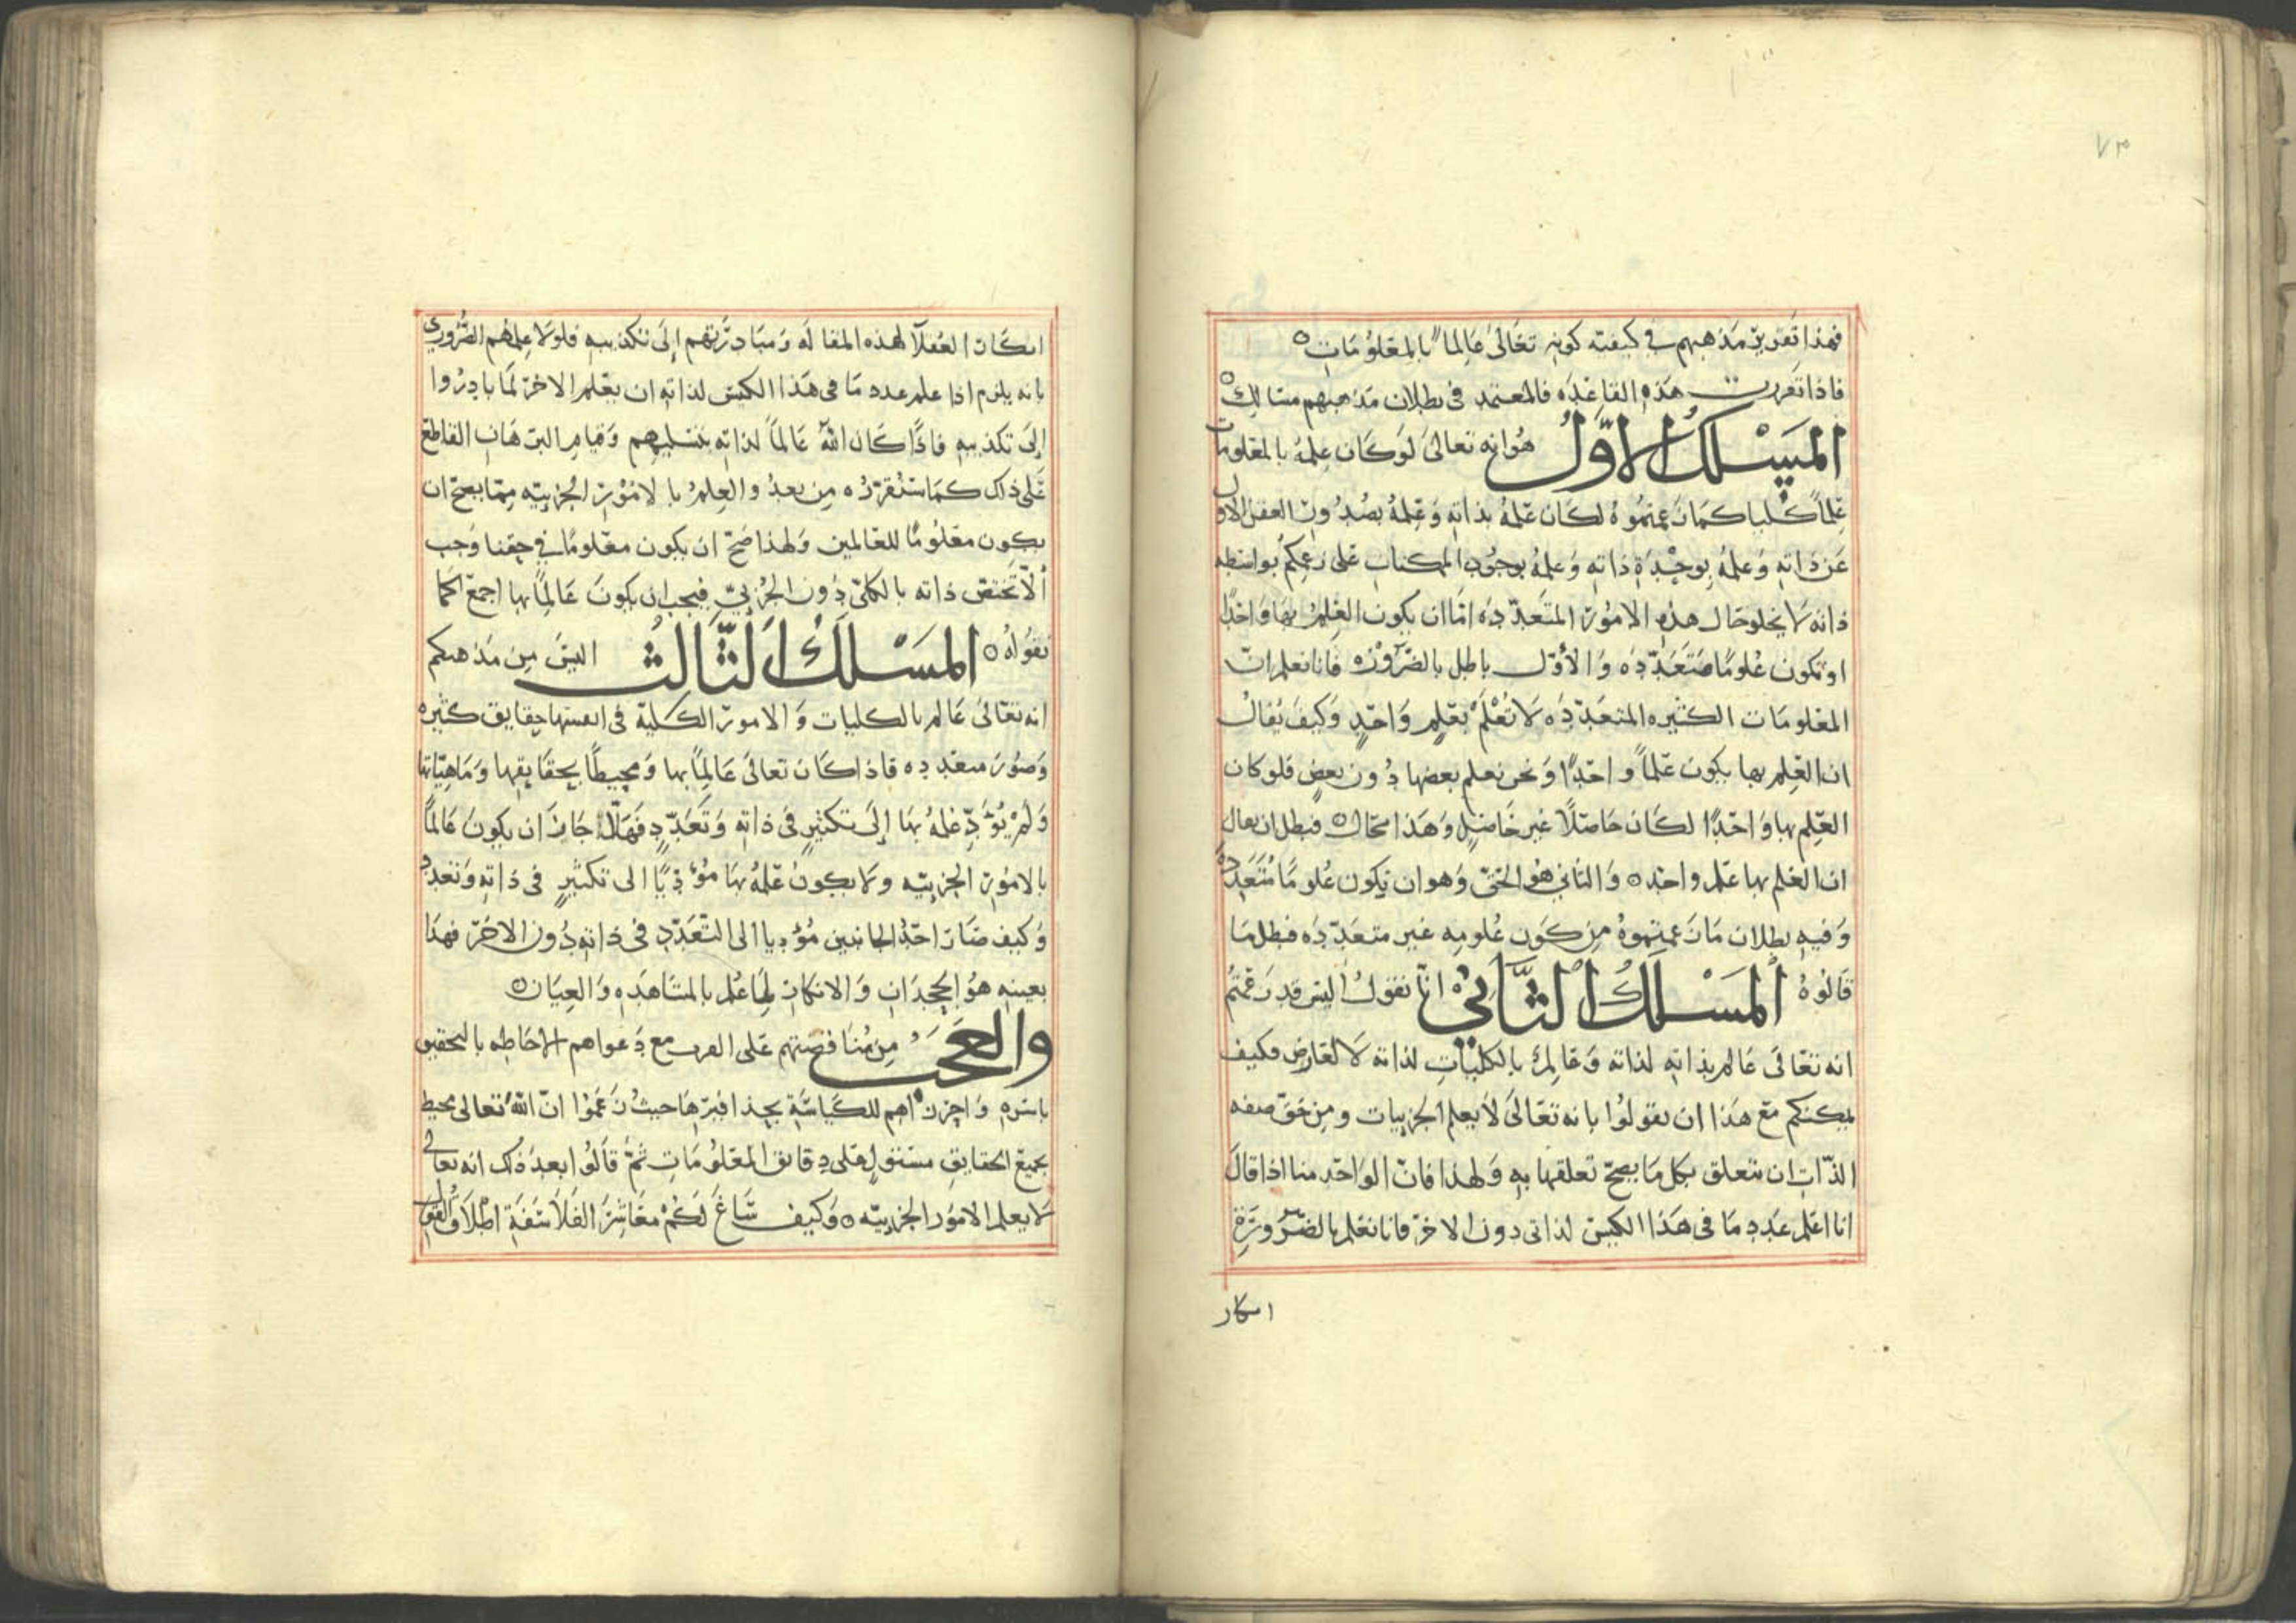 ٧٣
فهذا تقرير مذهبهم في كيفية كونه تعَالىٰ عَالماً بالمعلومَات ه
فاذا تقررت هَذه القاعدَه فالمعتمد فى بطلان مَذهبهم مسَالك ه
المَسْلكُ الاوّلُ هُوانه تعالىَ لوكَان علمهُ بالمعلومات
علماً كُلياً كمَا زعمتموهُ لكَان علمهُ بذاته وَعلمهُ بصُدُور العقل الاول
عَن ذاته وَعلمهُ بوحْدَة ذاته وَعلمهُ بوجُود الممكنات عَلى زعمِكمُ بواسطه
ذاته لا يخلو حَال هذه الامُور المتَعدّدَه امّا ان يكون العِلمُ بهَا وَاحدًا
او تكون عُلومًا متَعَدّدَه وَالأوّل باطل بالضّرُورَه فانا نعلم انّ
المعلومَات الكثيره المتعدّدَه لَا تُعْلَمُ بعلمٍ وَاحدٍ وَكيفَ يُقالُ
ان العِلم بها يكون علماً واحدًا وَنحن نعلم بعضها دُون بعضٍ فلو كان
العِلم بها وَاحدًا لكَان حَاصلًا غير حَاصلٍ وَهَذا محَال ه فبطل ان يقال
ان العلم بها علم واحد ه وَالثاني هُو الحَقّ وَهو ان يكون عُلومًا مُتعَدده
وَفيه بطلان مَا زعمتموهُ مِن كَون عُلومه غير متعدّدَه فبطل مَا
قالوُهُ المَسْلكُ الثَّانِيْ انّا نقولُ أليس قد زعمتمُ
انه تعَالىَ عَالم بذاته لذاته وَعَالِمٌ بالكلّيات لذاته لَا لعَارض فكيف
يمكنكم معَ هَذا ان تقولوُا بانه تعَالىَ لا يعلم الجزييات ومِن حَقّ صفه
الذّات ان تتعلق بكل مَا يصحّ تعلقها به وَلهذا فانّ الوَاحد منا اذا قالَ
انا اعلم عَدد مَا فى هَذا الكيس لذاتى دون الاخر فانا نعلم بالضّرُورَة
انكار
انكار العُقلآ لهذه المقالَه وَمبَادرَتهم إلىَ تكذيبه فلولَا عِلمُهم الضُّروري
بانه يلزم اذا علم عدد مَا فى هَذا الكيس لذاته ان يعلم الاخر لمَا بادرُوا
إلىَ تكذيبه فاذَا كَان اللهُ عَالماً لذاته بتسليمهم وَقيام البرهَان القاطع
عَلى ذلك كمَا سنقررُه مِن بعدُ والعِلمُ بالامُور الجُزييّه مِمّا يصحّ ان
يكون معلُومًا للعَالمين وَلهذا صَحّ ان يكون معلومًا في حقنا وَجب
ألّا تَختصّ ذاته بالكلّيّ دُون الجُزييّ فيجب ان يكونَ عَالِماً بها اجمعَ كما
نقوُلهُ ه المَسْلَكُ الثَّالثُ اليسَ مِن مَذهبكم
انه تعَالىَ عَالم بالكليات وَالامور الكليّة فى انفسها حقايق كثيره
وَصُورَ متعدده فاذا كَان تعالىَ عَالِماً بها وَمحيطًا بحقَايقها وَمَاهيّاتها
وَلمْ يُؤَدّ علمهُ بهَا إلىَ تكثيرٍ فى ذاته وَتَعَدّدٍ فهَلّا جَاز ان يكونَ عَالمًا
بالامُور الجزييّه وَلا يكونُ علمهُ بهَا مُؤدّيًا الى تكثيرٍ فى ذاته وَتعدد
وَكيف صَار احَدُ الجانبين مُؤديا الى التّعَدّد فى ذاته دُون الاخَر فهَذا
بعينه هوُ الجُحدَان وَالانكار لِمَا عُلم بالمشَاهدَه وَالعِيَان ه
والعَجَبُ مِن مُنَاقضتهم عَلى القرب مع دَعواهم الاحَاطه بالتحقيق
باسره وَاحرازهم للكيَاسَة بحذافيرهَا حيثُ زعَمُوا انّ اللهَ تعالى محيط
بجميع الحقايق مستولٍ عَلى دقائق المعلومَات ثمّ قالوُا بعدَ ذلك انه تعالى
لا يعلم الامور الجزييّه ه وَكيف سَاغَ لَكمْ معَاشِرَ الفلَاسفَة اطْلَاقُ القول